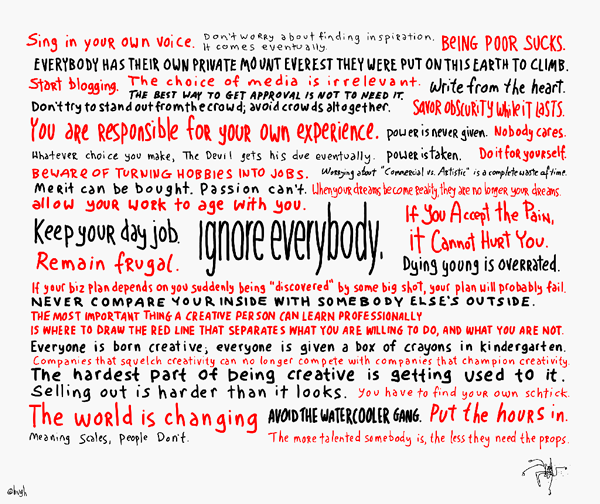 Sing in your own voice.
Don't worry about finding inspiration.
It comes eventually.
BEING POOR SUCKS.
EVERYBODY HAS THEIR OWN PRIVATE MOUNT EVEREST THEY WERE PUT ON THIS EARTH TO CLIMB.
Start blogging.
The choice of media is irrelevant.
Write from the heart.
THE BEST WAY TO GET APPROVAL IS NOT TO NEED IT.
Don't try to stand out from the crowd; avoid crowds altogether.
SAVOR OBSCURITY WHILE IT LASTS.
You are responsible for your own experience.
power is never given.
Nobody cares.
Whatever choice you make, The Devil gets his due eventually.
power is taken.
Do it for yourself.
BEWARE OF TURNING HOBBIES INTO JOBS.
Worrying about "Commercial vs. Artistic" is a complete waste of time.
Merit can be bought. Passion can't.
When your dreams become reality, they are no longer your dreams.
allow your work to age with you.
If You Accept the Pain,
it Cannot Hurt You.
Keep your day job.
ignore everybody.
Remain frugal.
Dying young is overrated.
If your biz plan depends on you suddenly being "discovered" by some big shot, your plan will probably fail.
NEVER COMPARE YOUR INSIDE WITH SOMEBODY ELSE'S OUTSIDE.
THE MOST IMPORTANT THING A CREATIVE PERSON CAN LEARN PROFESSIONALLY
IS WHERE TO DRAW THE RED LINE THAT SEPARATES WHAT YOU ARE WILLING TO DO, AND WHAT YOU ARE NOT.
Everyone is born creative; everyone is given a box of crayons in kindergarten.
Companies that squelch creativity can no longer compete with companies that champion creativity.
The hardest part of being creative is getting used to it.
Selling out is harder than it looks.
You have to find your own schtick.
The world is changing
AVOID THE WATERCOOLER GANG.
Put the hours in.
Meaning Scales, People Don't.
The more talented somebody is, the less they need the props.
@hugh